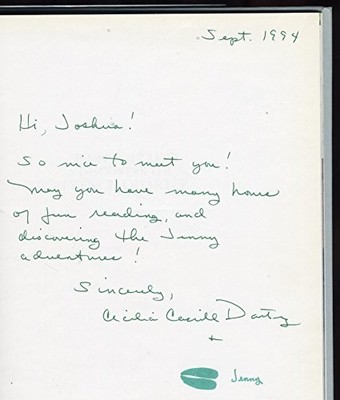 Sept. 1994
Hi, Joshua!
So nice to meet you!
May you have many hours
of fun reading, and
discovering the Jenny
adventures!
Sincerely,
Cecilia Casrill Dartez
+
Jenny